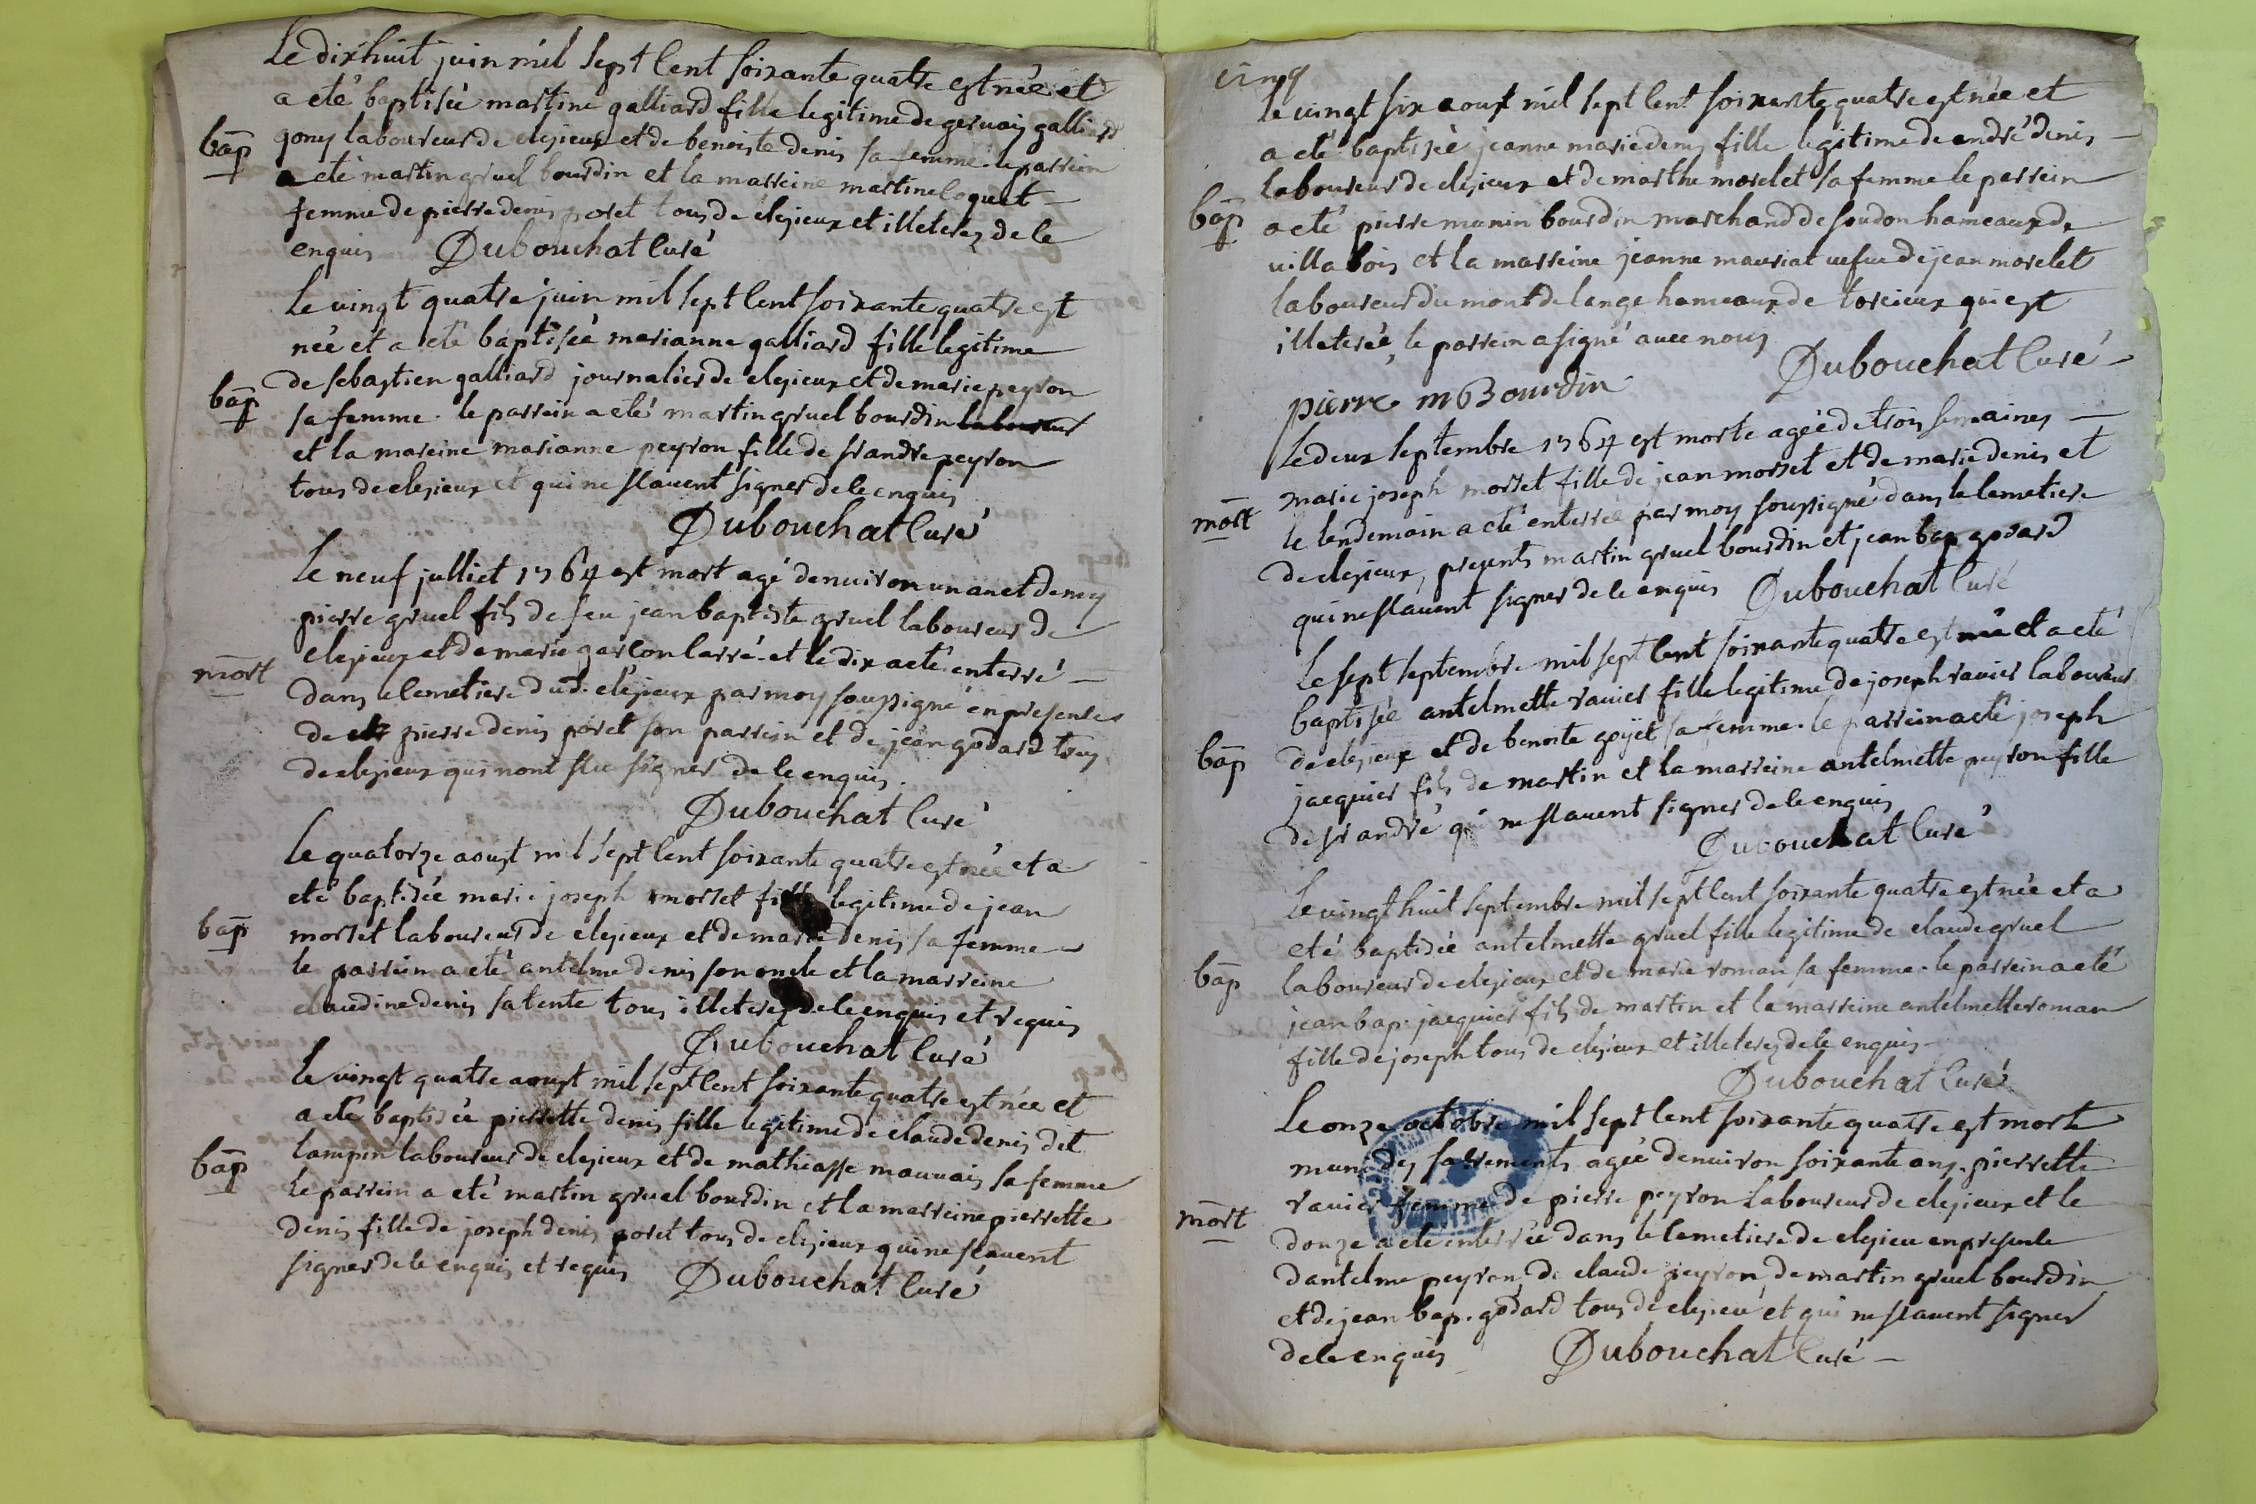 Le dixhuit juin mil sept cent soixante quatre est née et
a eté baptisée martine galliard fille legitime de gervais galliard
gony laboureur de clesieux et de benoiste denis sa femme. le parrein
bap
a eté martin gruel bourdin et la marreine martine loquet
femme de pierre denis poret tous de clesieux et illeterez de ce
enquis Dubouchat Curé
Le vingt quatre juin mil sept cent soixante quatre est
née et a eté baptisée marianne galliard fille legitime
de sebastien galliard journalier de clesieux et de marie peyron
bap
sa femme. le parrein a eté martin gruel bourdin laboureur
et la mareine marianne peyron fille de sr andre peyron
tous de clesieux et qui ne scavent signer de ce enquis
Dubouchat Curé
Le neuf julliet 1764 est mort agé denviron un an et demy
pierre gruel fils de feu jean baptiste gruel laboureur de
clesieux et de marie garcon carré et le dix a eté enterré
mort
dans le cemetiere dud. clesieux par moy soussigné en presences
de pierre denis poret son parrein et de jean godard tous
de clesieux qui nont scu signer de ce enquis.
Dubouchat Curé
Le quatorze aoust mil sept cent soixante quatre est née et a
eté baptisée marie joseph morset fille legitime de jean
bap
morset laboureur de clesieux et de marie denis sa femme
le parrein a eté antelme denis son oncle et la marreine
claudine denis sa tente tous illeterez de ce enquis et requis
Dubouchat Curé
Le vingt quatre aoust mil sept cent soixante quatre est née et
a eté baptisée pierrette denis fille legitime de claude denis dit
bap
lampin laboureur de clesieux et de matheasse mauvais sa femme
le parrein a eté martin gruel bourdin et la marreine pierrette
denis fille de joseph denis poret tous de clesieux qui ne scavent
signer de ce enquis et requis Dubouchat Curé
cinq
Le vingt six aoust mil sept cent soixante quatre est née et
a eté baptisée jeanne marie denis fille legitime de andré denis
laboureur de clesieux et de marthe morelet sa femme le parrein
bap
a eté pierre munin bourdin marchand de soudon hameaux de
villabois et la marreine jeanne mauriat vefve de jean morelet
laboureur du mont de lange hameaux de torcieux qui est
illeterée, le parrein a signé avec nous
Dubouchat Curé
pierre m Bourdin
Le deux septembre 1764 est morte agée de trois semaines
marie joseph morset fille de jean morset et de marie denis et
mort
le lendemain a eté enterrée par moy soussigné dans le cemetiere
de clesieux, presents martin gruel bourdin et jean bap godard
qui ne scavent signer de ce enquis Dubouchat Curé
Le sept septembre mil sept cent soixante quatre est née et a eté
baptisée antelmette ravier fille legitime de joseph ravier laboureur
bap
de clesieux et de benoite goyet sa femme. le parrein a eté joseph
jacquier fils de martin et la marreine antelmette peyron fille
de sr andré qui ne scavent signer de ce enquis
Dubouchat Curé
Le vingt huit septembre mil sept cent soixante quatre est née et a
eté baptisée antelmette gruel fille legitime de claude gruel
bap
laboureur de clesieux et de marie roman sa femme. le parrein a eté
jean bap. jacquier fils de martin et la marreine antelmette roman
fille de joseph tous de clesieux et illeterez de ce enquis
Dubouchat Curé
Le onze octobre mil sept cent soixante quatre est morte
munie des sacrements agée denviron soixante ans. pierrette
mort
ravier femme de pierre peyron laboureur de clesieux et le
douze a eté enterrée dans le cemetiere de clesieu en presence
dantelme peyron, de claude peyron, de martin gruel bourdin
et de jean bap. godard tous de clesieu et qui ne scavent signer
de ce enquis Dubouchat Curé